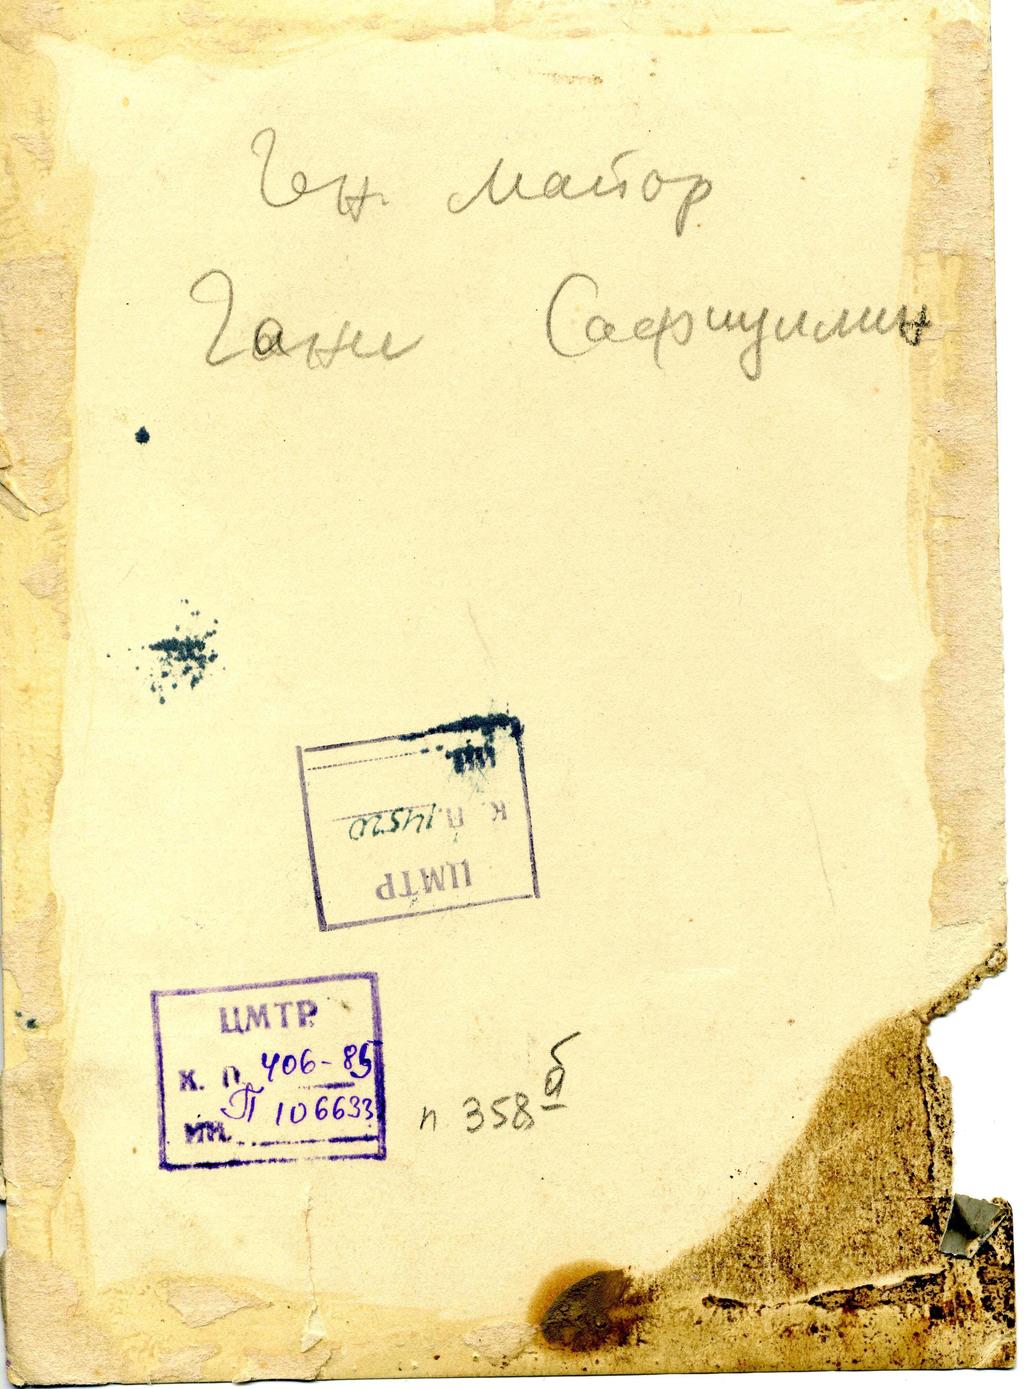 Ген. майор
Гани Сафиуллин
ЦМТР
К. П. 14520
ЦМТР
К. П. 406-85
П 106633
ИН.
п 358 б